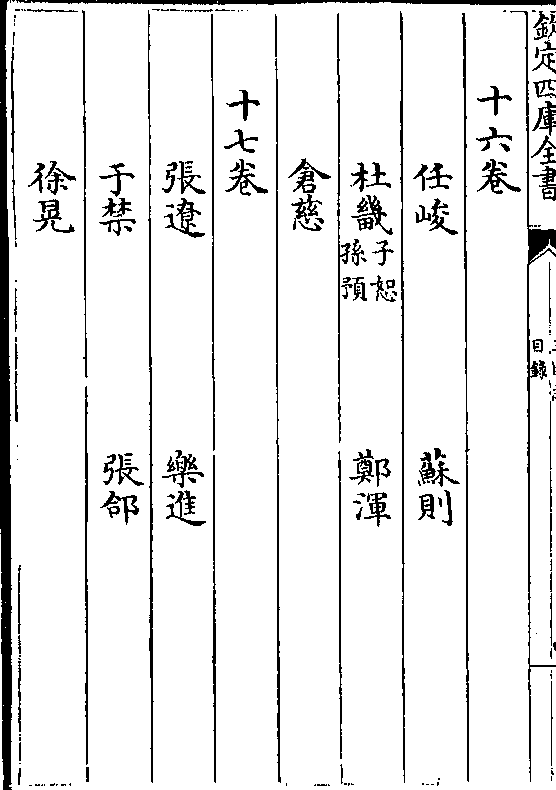 欽定四庫全書
目錄
十六卷
任峻 蘇則
杜畿子恕孫預 鄭渾
倉慈
十七卷
張遼 樂進
于禁 張郃
徐晃